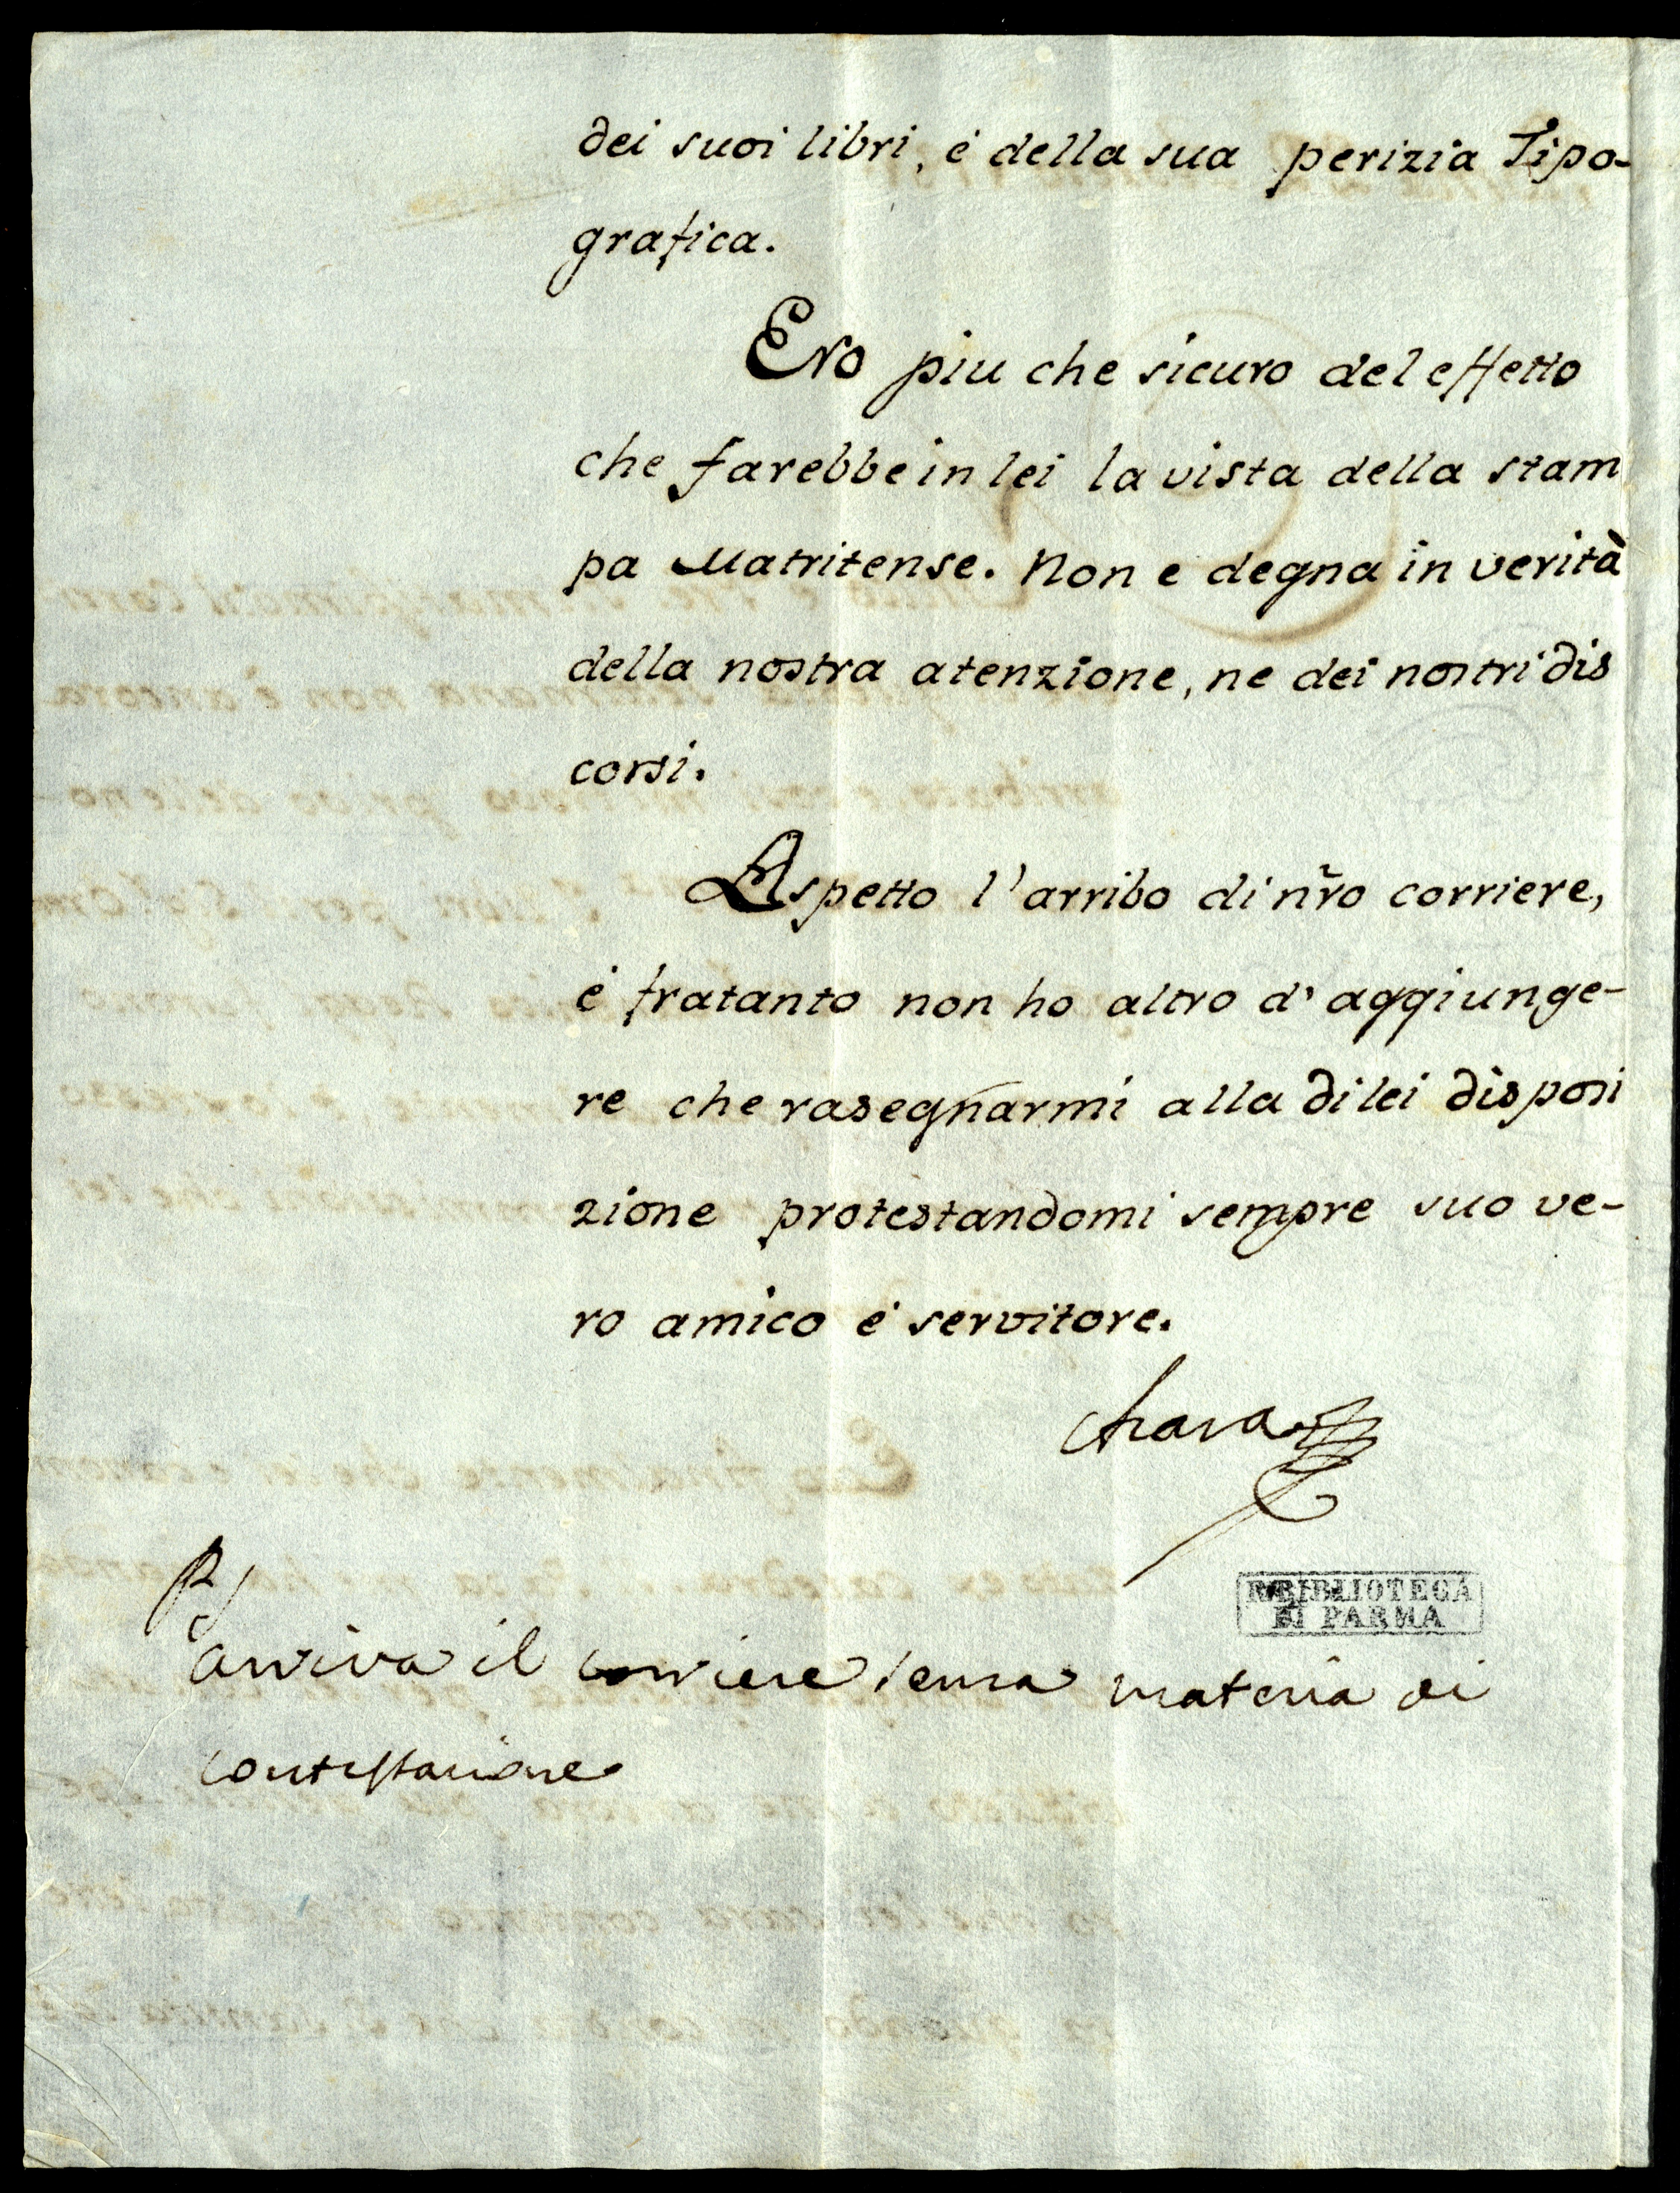 dei suoi libri, é della sua perizia Tipo-
grafica.
Ero piu che sicuro del effetto
che farebbe in lei la vista della stam
pa Matritense. Non e degna in verità
della nostra atenzione, ne dei nostri dis
corsi.
Aspetto l'arribo di nr̃o corriere,
é fratanto non ho altro d'aggiunge-
re che rasegnarmi alla di lei disposi
zione protestandomi sempre suo ve-
ro amico é servitore.
R. BIBLIOTECA
DI PARMA
arriva il corriere senza materia di
contestazione